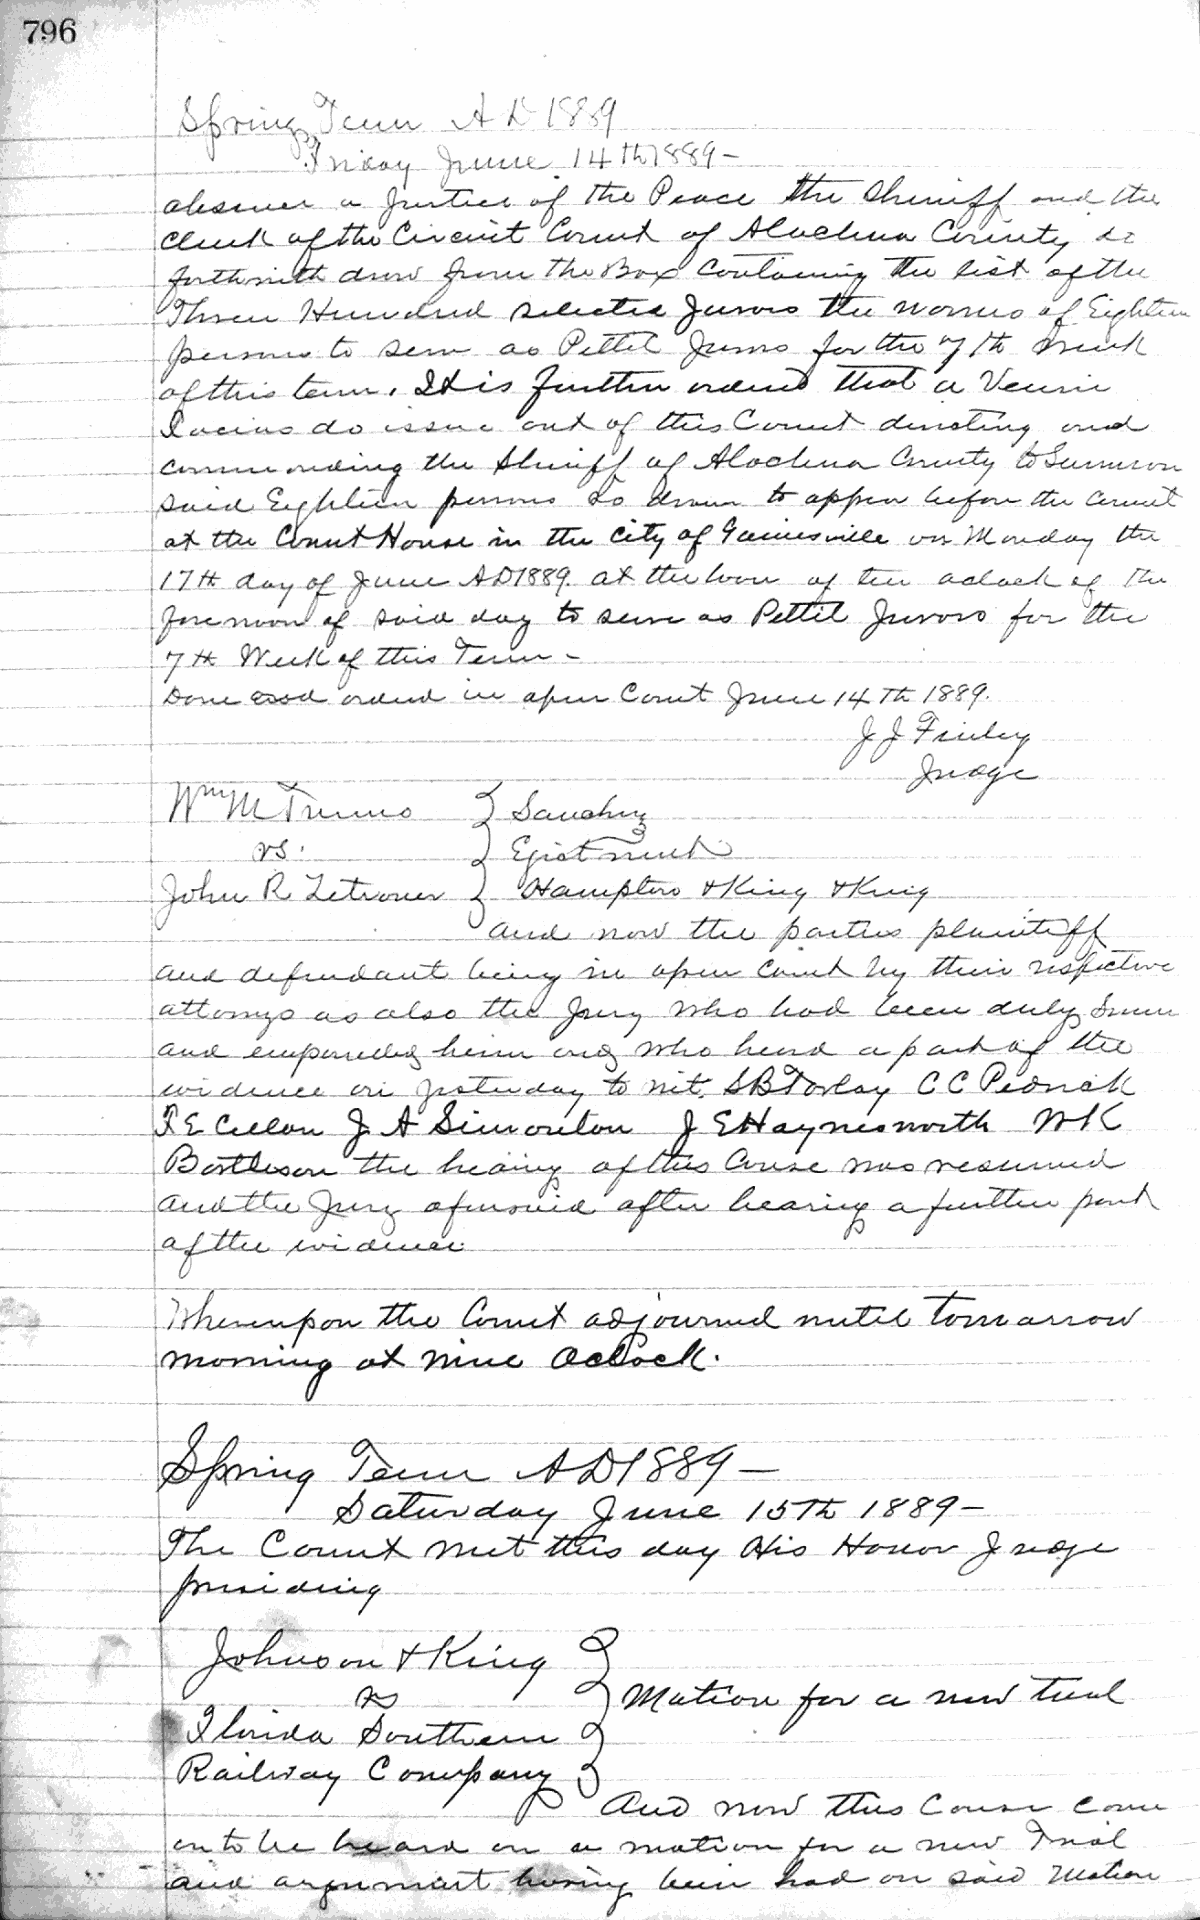 796
Spring Term A D 1889
Friday June 14th 1889 -
absence a Justice of the Peace the Sheriff and the
Clerk of the Circuit Court of Alachua County do
forthwith draw from the Box Containing the list of the
Three Hundred selected Jurors the names of Eighteen
persons to serve as Pettit Jurors for the 7th Week
of this term. It is further ordered that a Venire
Facias do issue out of this Court directing and
commanding the Sheriff of Alachua County to Summon
said Eighteen persons so drawn to appear before the Court
at the Court House in the City of Gainesville on Monday the
17th day of June AD 1889 at the hour of ten oclock of the
forenoon of said day to serve as Pettit Jurors for the
7th Week of this Term -
Done and ordered in open Court June 14th 1889.
J J Finley
Judge
Wm M
vs.
John R Zetrouer
Ejectment
Hampton & King & King
and now the parties plaintiff
and defendant being in open Court by their respective
attorneys as also the Jury who had been duly Sworn
and who heard a part of the
evidence on yesterday to wit. S B C C Pedrick
J A Simonton J E Haynesworth W K
the hearing of this Cause was resumed
and the Jury aforesaid after hearing a further part
of the evidence
Whereupon the Court adjourned until tomorrow
morning at nine Oclock.
Spring Term AD 1889 -
Saturday June 15th 1889 -
The Court met this day His Honor Judge
presiding
Johnson & King
vs
Florida Southern
Railway Company
Motion for a new trial
And now this Cause come
on to be heard on a motion for a new Trial
and argument having been had on said Motion